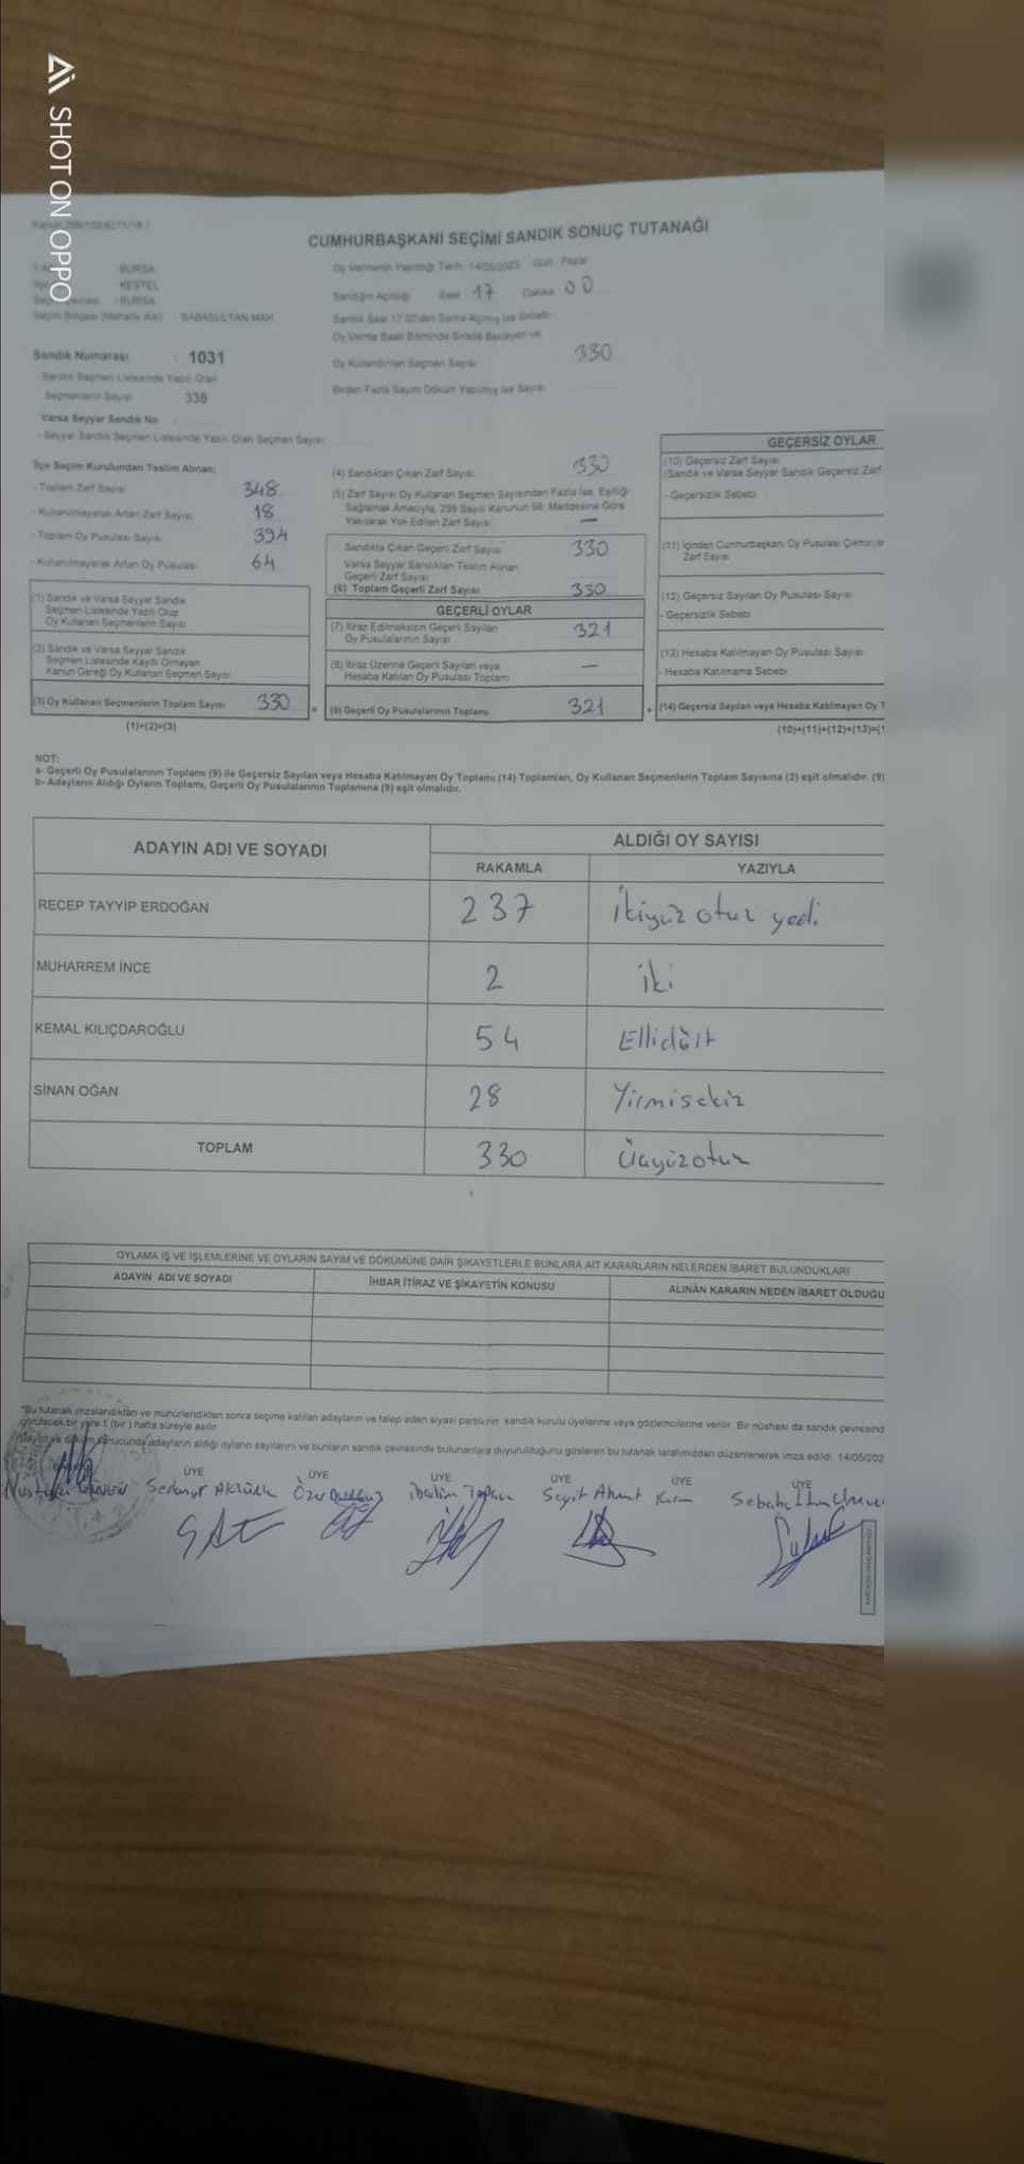 SHOT ON OPPO
CUMHURBAŞKANI SEÇİMİ SANDIK SONUÇ TUTANAĞI
BURSA
KESTEL
BURSA
BABASULTAN MAH.
Oy Vermenin Yapıldığı Tarih: 14/05/2023 Gün: Pazar
Sandığın Açıldığı Saat 17 Dakika 00
Sandık Numarası : 1031
- Sandık Seçmen Listesinde Yazılı Olan
Seçmenlerin Sayısı 338
Oy Kullandırılan Seçmen Sayısı 330
Birden Fazla Sayım Döküm Yapılmış İse Sayısı
Varsa Seyyar Sandık No
- Seyyar Sandık Seçmen Listesinde Yazılı Olan Seçmen Sayısı
İlçe Seçim Kurulundan Teslim Alınan;
- Toplam Zarf Sayısı 348
- Kullanılmayarak Artan Zarf Sayısı 18
- Toplam Oy Pusulası Sayısı 394
- Kullanılmayarak Artan Oy Pusulası 64
(1) Sandık ve Varsa Seyyar Sandık
Seçmen Listesinde Yazılı Olup
Oy Kullanan Seçmenlerin Sayısı
(2) Sandık ve Varsa Seyyar Sandık
Seçmen Listesinde Kayıtlı Olmayan
Kanun Gereği Oy Kullanan Seçmen Sayısı
(3) Oy Kullanan Seçmenlerin Toplam Sayısı 330
(1)+(2)=(3)
(4) Sandıktan Çıkan Zarf Sayısı 330
(5) Zarf Sayısı Oy Kullanan Seçmen Sayısından Fazla İse, Eşitliği
Sağlamak Amacıyla, 298 Sayılı Kanunun 98. Maddesine Göre
Yakılarak Yok Edilen Zarf Sayısı —
Sandıkta Çıkan Geçerli Zarf Sayısı 330
Varsa Seyyar Sandıktan Teslim Alınan
Geçerli Zarf Sayısı
(6) Toplam Geçerli Zarf Sayısı 330
GEÇERLİ OYLAR
(7) İtiraz Edilmeksizin Geçerli Sayılan
Oy Pusulalarının Sayısı 321
(8) İtiraz Üzerine Geçerli Sayılan veya
Hesaba Katılan Oy Pusulası Toplamı —
(9) Geçerli Oy Pusulalarının Toplamı 321
GEÇERSİZ OYLAR
(10) Geçersiz Zarf Sayısı
(Sandık ve Varsa Seyyar Sandık Geçersiz Zarf
- Geçersizlik Sebebi
(11) İçinden Cumhurbaşkanı Oy Pusulası
Zarf Sayısı
(12) Geçersiz Sayılan Oy Pusulası Sayısı
- Geçersizlik Sebebi
(13) Hesaba Katılmayan Oy Pusulası Sayısı
- Hesaba Katılmama Sebebi
(14) Geçersiz Sayılan veya Hesaba Katılmayan Oy
(10)+(11)+(12)+(13)=(1
NOT:
a- Geçerli Oy Pusulalarının Toplamı (9) ile Geçersiz Sayılan veya Hesaba Katılmayan Oy Toplamı (14) Toplamları, Oy Kullanan Seçmenlerin Toplam Sayısına (3) eşit olmalıdır. (9)
b- Adayların Aldığı Oyların Toplamı, Geçerli Oy Pusulalarının Toplamına (9) eşit olmalıdır.
ADAYIN ADI VE SOYADI ALDIĞI OY SAYISI
RAKAMLA YAZIYLA
RECEP TAYYİP ERDOĞAN 237 İkiyüz otuz yedi
MUHARREM İNCE 2 iki
KEMAL KILIÇDAROĞLU 54 Ellidört
SİNAN OĞAN 28 Yirmisekiz
TOPLAM 330 Üçyüzotuz
OYLAMA İŞ VE İŞLEMLERİNE VE OYLARIN SAYIM VE DÖKÜMÜNE DAİR ŞİKAYETLERLE BUNLARA AİT KARARLARIN NELERDEN İBARET BULUNDUKLARI
ADAYIN ADI VE SOYADI İHBAR İTİRAZ VE ŞİKAYETİN KONUSU ALINAN KARARIN NEDEN İBARET OLDUĞU
*Bu tutanak imzalandıktan ve mühürlendikten sonra seçime katılan adayların ve talep eden siyasi partilerin sandık kurulu üyelerine veya gözlemcilerine verilir. Bir nüshası da sandık çevresind
görülecek bir yere 1 (bir) hafta süreyle asılır.
sonucunda adayların aldığı oyların sayılarını ve bunların sandık çevresinde bulunanlara duyurulduğunu gösteren bu tutanak tarafımızdan düzenlenerek imza edildi. 14/05/202
ÜYE ÜYE ÜYE ÜYE ÜYE ÜYE
Sedanur Aktürk Özer İbrahim Toplan Seyit Ahmet